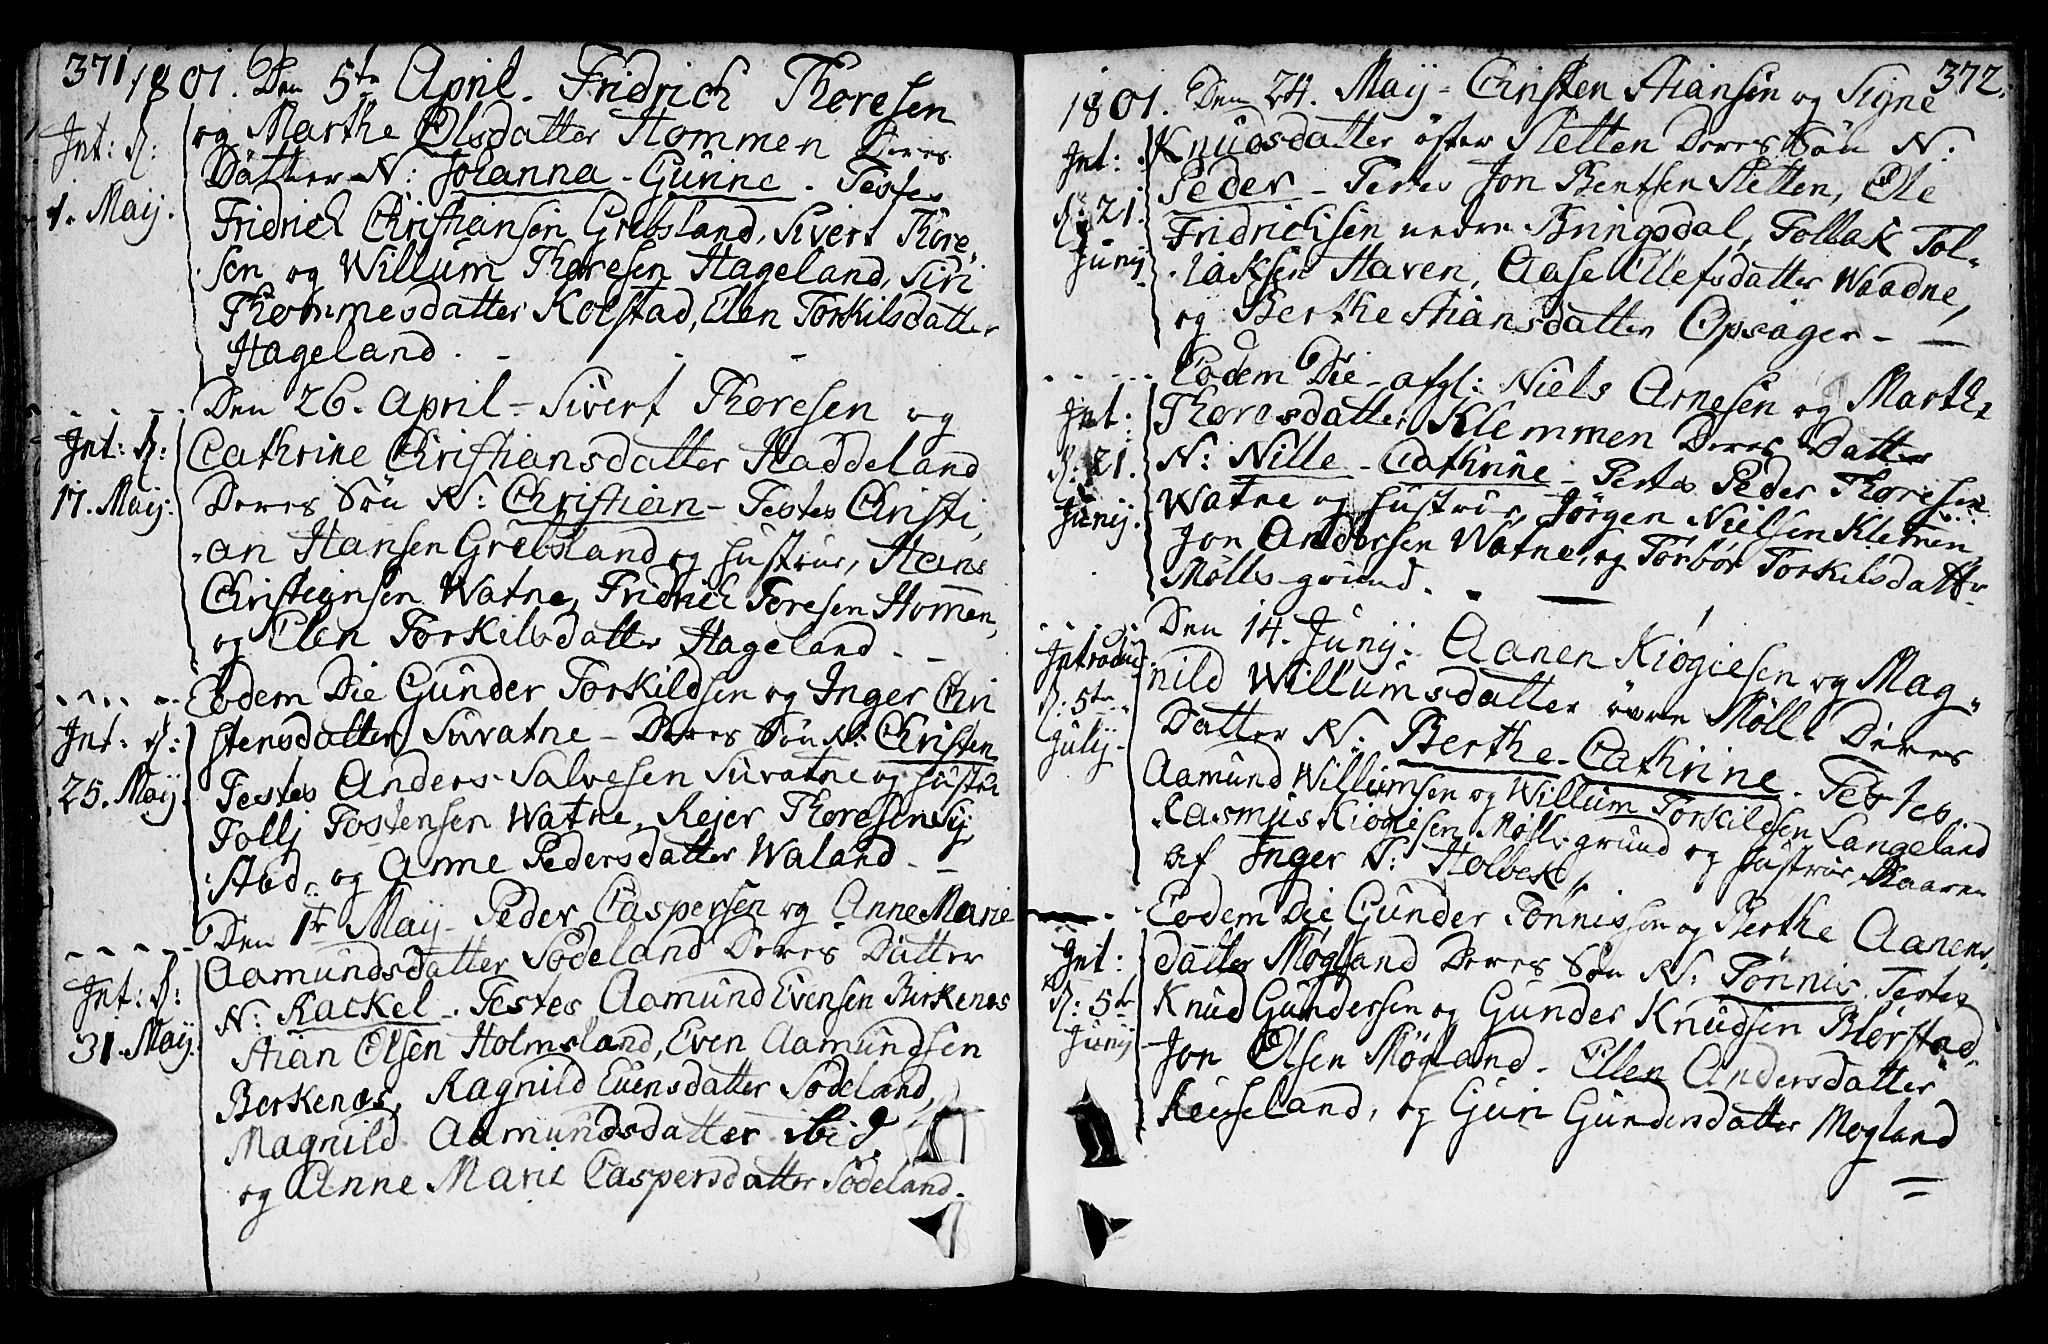 371
1801. Den 5te April. Fridrich Thoresen
Int: d:
1. Maij.
og Marthe Olsdatter Hommen Deres
Datter N: Johanna-Gunne. Testes
Fridrich Christiansen Grebsland, Sivert Thore,
sen og Willum Thoresen Hageland, Siri
Thommesdatter Kolstad, Elen Torkilsdatter
Hageland.
Den 26. April - Sivert Thoresen og
Int: d:
17. Maij.
Cathrine Christiansdatter Haddeland
Deres Søn N: Christian - Testes Christi,
an Hansen Grebsland og Hustrue, Hans
Christiansen Watne, Fridrich Toresen Hom̄en,
og Elen Torkilsdatter Hageland.
Eodem Die Gunder Torkildsen og Inger Chri
Int: d:
25. Maij.
stensdatter Suvatne - Deres Søn N: Christen
Testes Anders Salvesen Suvatne og Hustru
Tollj Tostensen Watne, Rejer Thoresen Sy,
stad, og Anne Pedersdatter Waland -
Den 1te Maij - Peder Caspersen og Anne Marie
Int: d:
31. Maij.
Aamundsdatter Sødeland Deres Datter
N: Rackel. Testes Aamund Evensen Birkenes
Stian Olsen Holmsland, Even Aamundsen
Berkenes, Ragnild Evensdatter Sødeland,
Magnild Aamundsdatter ibid.
og Anne Marie Caspersdatter Sødeland.
372.
1801. Den 24. Maij - Christen Stiansen og Signe
Int:
d: 21.
Junij
Knudsdatter øster Sletten Deres Søn N:
Peder - Testes Jon Bentsen Sletten, Ole
Fridrichsen nedre Bringsdal, Tollak Tol-
laksen Staven, Aase Ellefsdatter Waadne,
og Berthe Stiansdatter Opsager -
Eodem Die - afgl: Niels Arnesen og Marthe
Int:
d: 21.
Junij.
Thoresdatter Klemmen Deres Datter
N: Nille-Cathrine - Testes Peder Thoresen
Watne og Hustrue, Jørgen Nielsen Klemen,
Jon Andersen Watne, og Torbør Torkilsdatter
Mølls-grund.
Den 14. Junij. Aanen Kiøgiesen og Mag,
Introduc:
d: 5te
Julij -
nild Willumsdatter øvre Møll. Deres
Datter N. Berthe-Cathrine. Testes
Aamund Willumsen og Willum Torkildsen Langeland
Rasmus Kiøgiesen Møllsgrund og Hustrue Maaren
af Inger T: Holbek.
Eodem Die Gunder Tønnissen og Berthe Aanens,
Int:
d: 5te
Junij
datter Møgland Deres Søn N: Tønnis. Testes
Knud Gundersen og Gunder Knudsen Blørstad,
Jon Olsen Møgland - Ellen Andersdatter
Reiseland, og Gun Gundersdatter Møgland